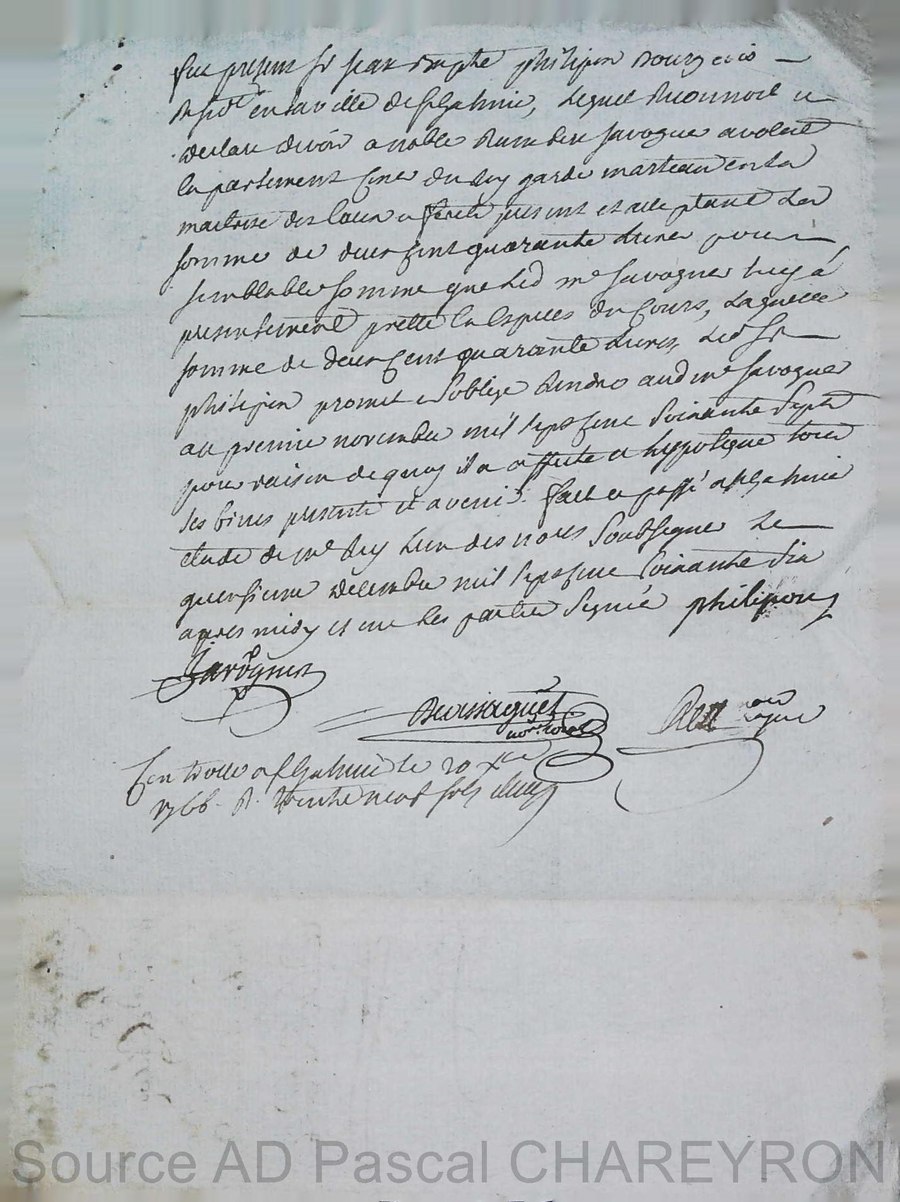 fut present Sr jean baptte philipon Bourgeois
Residt en la ville de St galmier, Lequel Reconnoit et
declare devoir a noble Savogner avocat
En parlement Coner du Roy garde marteau en la
maitrise des Eaux et forets present et acceptant La
somme de deux Cent quarante Livres pour
semblable somme que Led me Savogner luy a
presentement pretté En Especes du Cours, Laquelle
somme de deux Cent quarante Livres Led Sr
philipon promet et S'oblige Rendre aud me Savogner
au premier novembre mil sept Cent Soixante Sept
pour raison de quoy il a affecté et hypotequé tous
ses biens presents et avenir. fait et passé a St galmier
etude de me Rey L'un des nores Soubsignés Le
quinsieme decembre mil sept Cent Soixante Six
apres midy et ont Les parties Signé philipon
Savogner
nore royal
nore
royal
Controllé a St galmier le 20 Xbre
1766. R. trente neuf sols
Source AD Pascal CHAREYRON